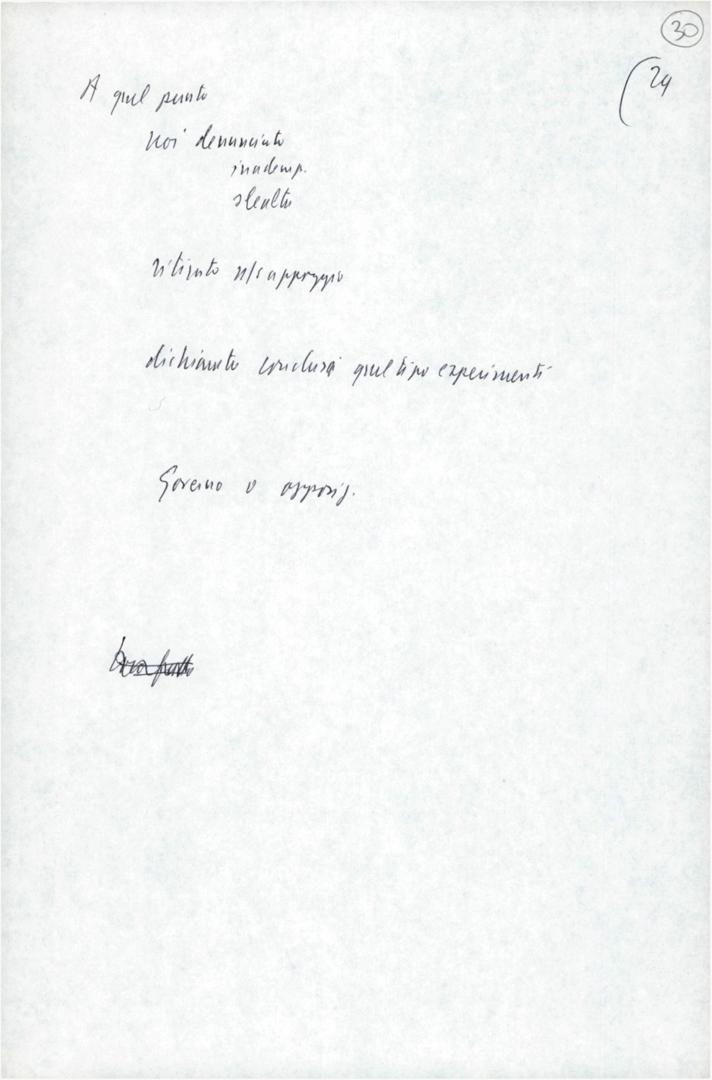 30
24
A quel punto
noi denunciato
inademp.
slealtà
ritirato n/s appoggio
dichiarato conclusa quel tipo experimenti
Governo o opposiz.